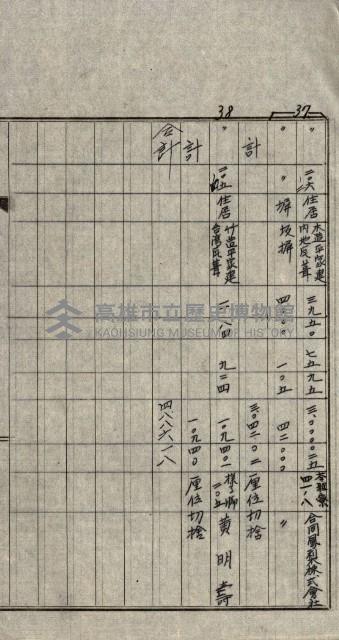 37
〃 二〇六 住居 木造平家建 内地瓦葺 三九五〇 七五九五 三、〇〇〇〇二五 苓雅寮 四一八 合同鳳梨株式會社
〃 〃 塀 板塀 四〇〇〇 一〇五 四二〇〇〇 〃
計 三、〇四二〇二 厘位切捨
38
〃 二〇五 住居 竹造平家建 台湾瓦葺 二一八四 九二四 一〇九四〇一 二〇五 黄明壽
計 一〇九四〇 厘位切捨
合計 四八八六一八
高雄市立歷史博物館
KAOHSIUNG MUSEUM OF HISTORY